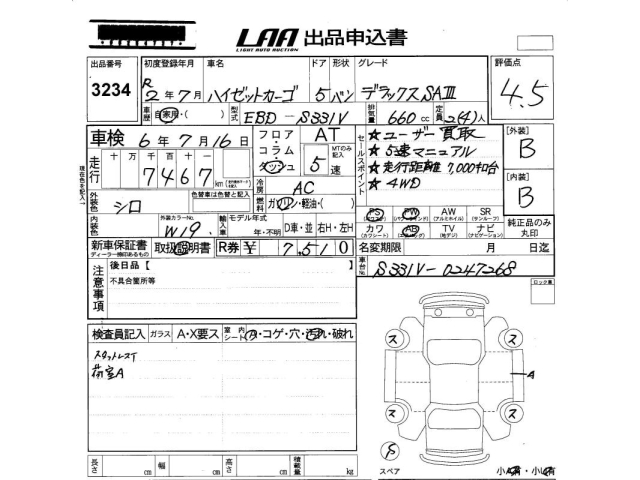 LAA 出品申込書
LIGHT AUTO AUCTION
出品番号 初度登録年月 車名 ドア 形状 グレード 評価点
3234 R2年7月 ハイゼットカーゴ 5 バン デラックスSAⅢ 4.5
車歴 自家用・( ) 型式 EBD-S331V 排気量 660cc 定員 2(4)人
車検 6年7月16日 フロア・コラム・ダッシュ AT MTのみ記入 5速
セールスポイント
★ユーザー買取
★5速マニュアル
★走行距離7,000キロ台
★4WD
[外装] B
[内装] B
現在色を記入
走行 十万千百十一
7467km
冷房 AC
外装色 シロ 色替車は色替と記入
燃料 ガソリン・軽油・( )
PS PW AW SR
(パワステ) (パワーウインド) (アルミホイル) (サンルーフ)
カワ AB TV ナビ
(カワシート) (エアバッグ) (地デジ) (ナビゲーション)
純正品のみ丸印
内装色 外装カラーNo. W19 輸入車 モデル年式 年・不明 D車・並 右H・左H
新車保証書 取扱説明書 R券 ¥ 7,510 名変期限 月 日迄
ディーラー捺印あるもの
車台No. S331V-0247268
注意事項 後日品【 】
不具合箇所等
ロック車
検査員記入 ガラス A・X要ス 室内シート ・コゲ・穴・汚れ・破れ
スタットレス
荷室A
ス ス
A
ス ス
スペア
長さ cm 幅 cm 高さ cm 積載量 kg